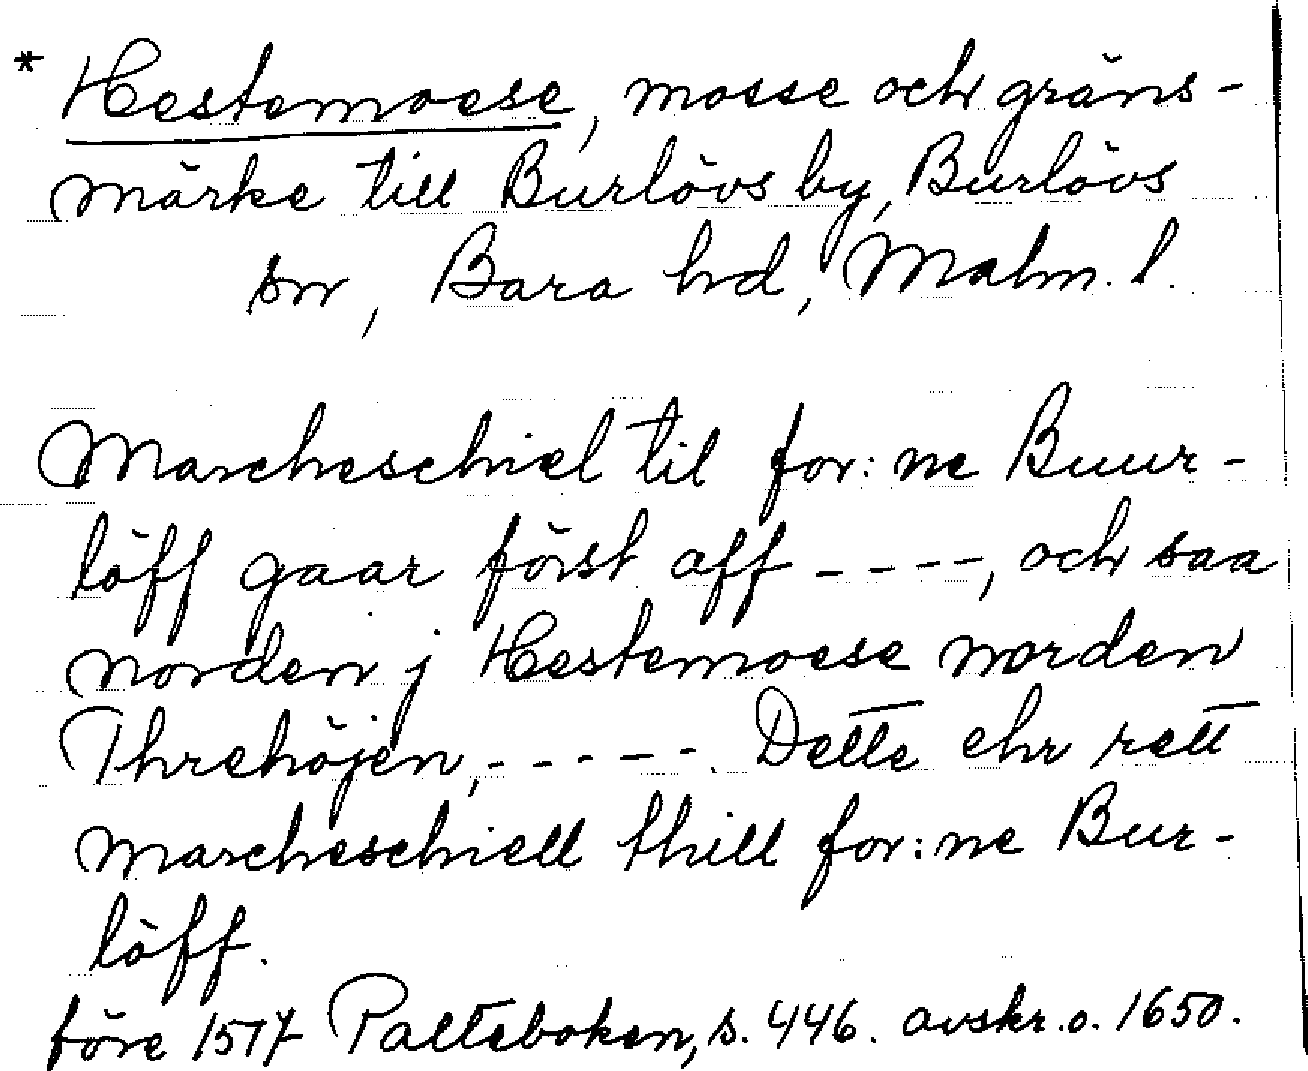 * Hestemoese, mosse och gräns-
märke till Burlövs by, Burlövs
sn, Bara hd, Malm. l.
Marcheschiel til for: ne Buur-
löff gaar först aff - - - -, och saa
norden j Hestemoese norden
Threhöjen, - - - - -. Dette ehr rett
marcheschiell thill for: ne Bur-
löff.
före 1517 Palteboken, s. 446. avskr. o. 1650.